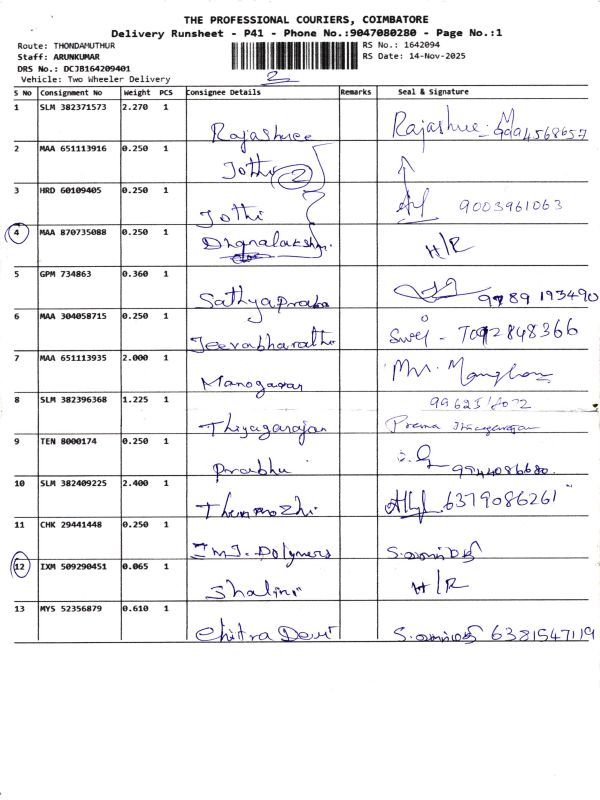 THE PROFESSIONAL COURIERS, COIMBATORE
Delivery Runsheet - P41 - Phone No.:9047080280 - Page No.:1
Route: THONDAMUTHUR RS No.: 1642094
Staff: ARUNKUMAR RS Date: 14-Nov-2025
DRS No.: DCJB164209401
Vehicle: Two Wheeler Delivery 2
S No Consignment No Weight PCS Consignee Details Remarks Seal & Signature
1 SLM 382371573 2.270 1 Rajashree Rajashree
2 MAA 651113916 0.250 1 Jothi 2
3 HRD 60109405 0.250 1 Jothi 9003961063
4 MAA 870735088 0.250 1 H/R
5 GPM 734863 0.360 1 Sathyapraba 9789 193490
6 MAA 304058715 0.250 1 Jeevabharathi
7 MAA 651113935 2.000 1 Manogaran Mr.
8 SLM 382396368 1.225 1 Thiyagarajan Prema Thiagarajan
9 TEN 8000174 0.250 1 Prabhu 9944086680
10 SLM 382409225 2.400 1 Thenmozhi 6379086261
11 CHK 29441448 0.250 1 I.M.J. Polymers
12 IXM 509290451 0.065 1 Shalini H/R
13 MYS 52356879 0.610 1 Chitra Devi 6381547119